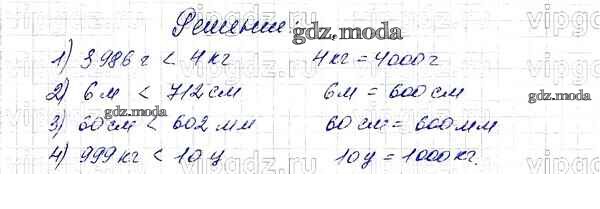 Решение:
gdz.moda
1) 3986 г < 4 кг 4 кг = 4000 г
2) 6 м < 712 см 6 м = 600 см
gdz.moda gdz.moda
3) 60 см < 602 мм 60 см = 600 мм
4) 999 кг < 10 ц 10 ц = 1000 кг.